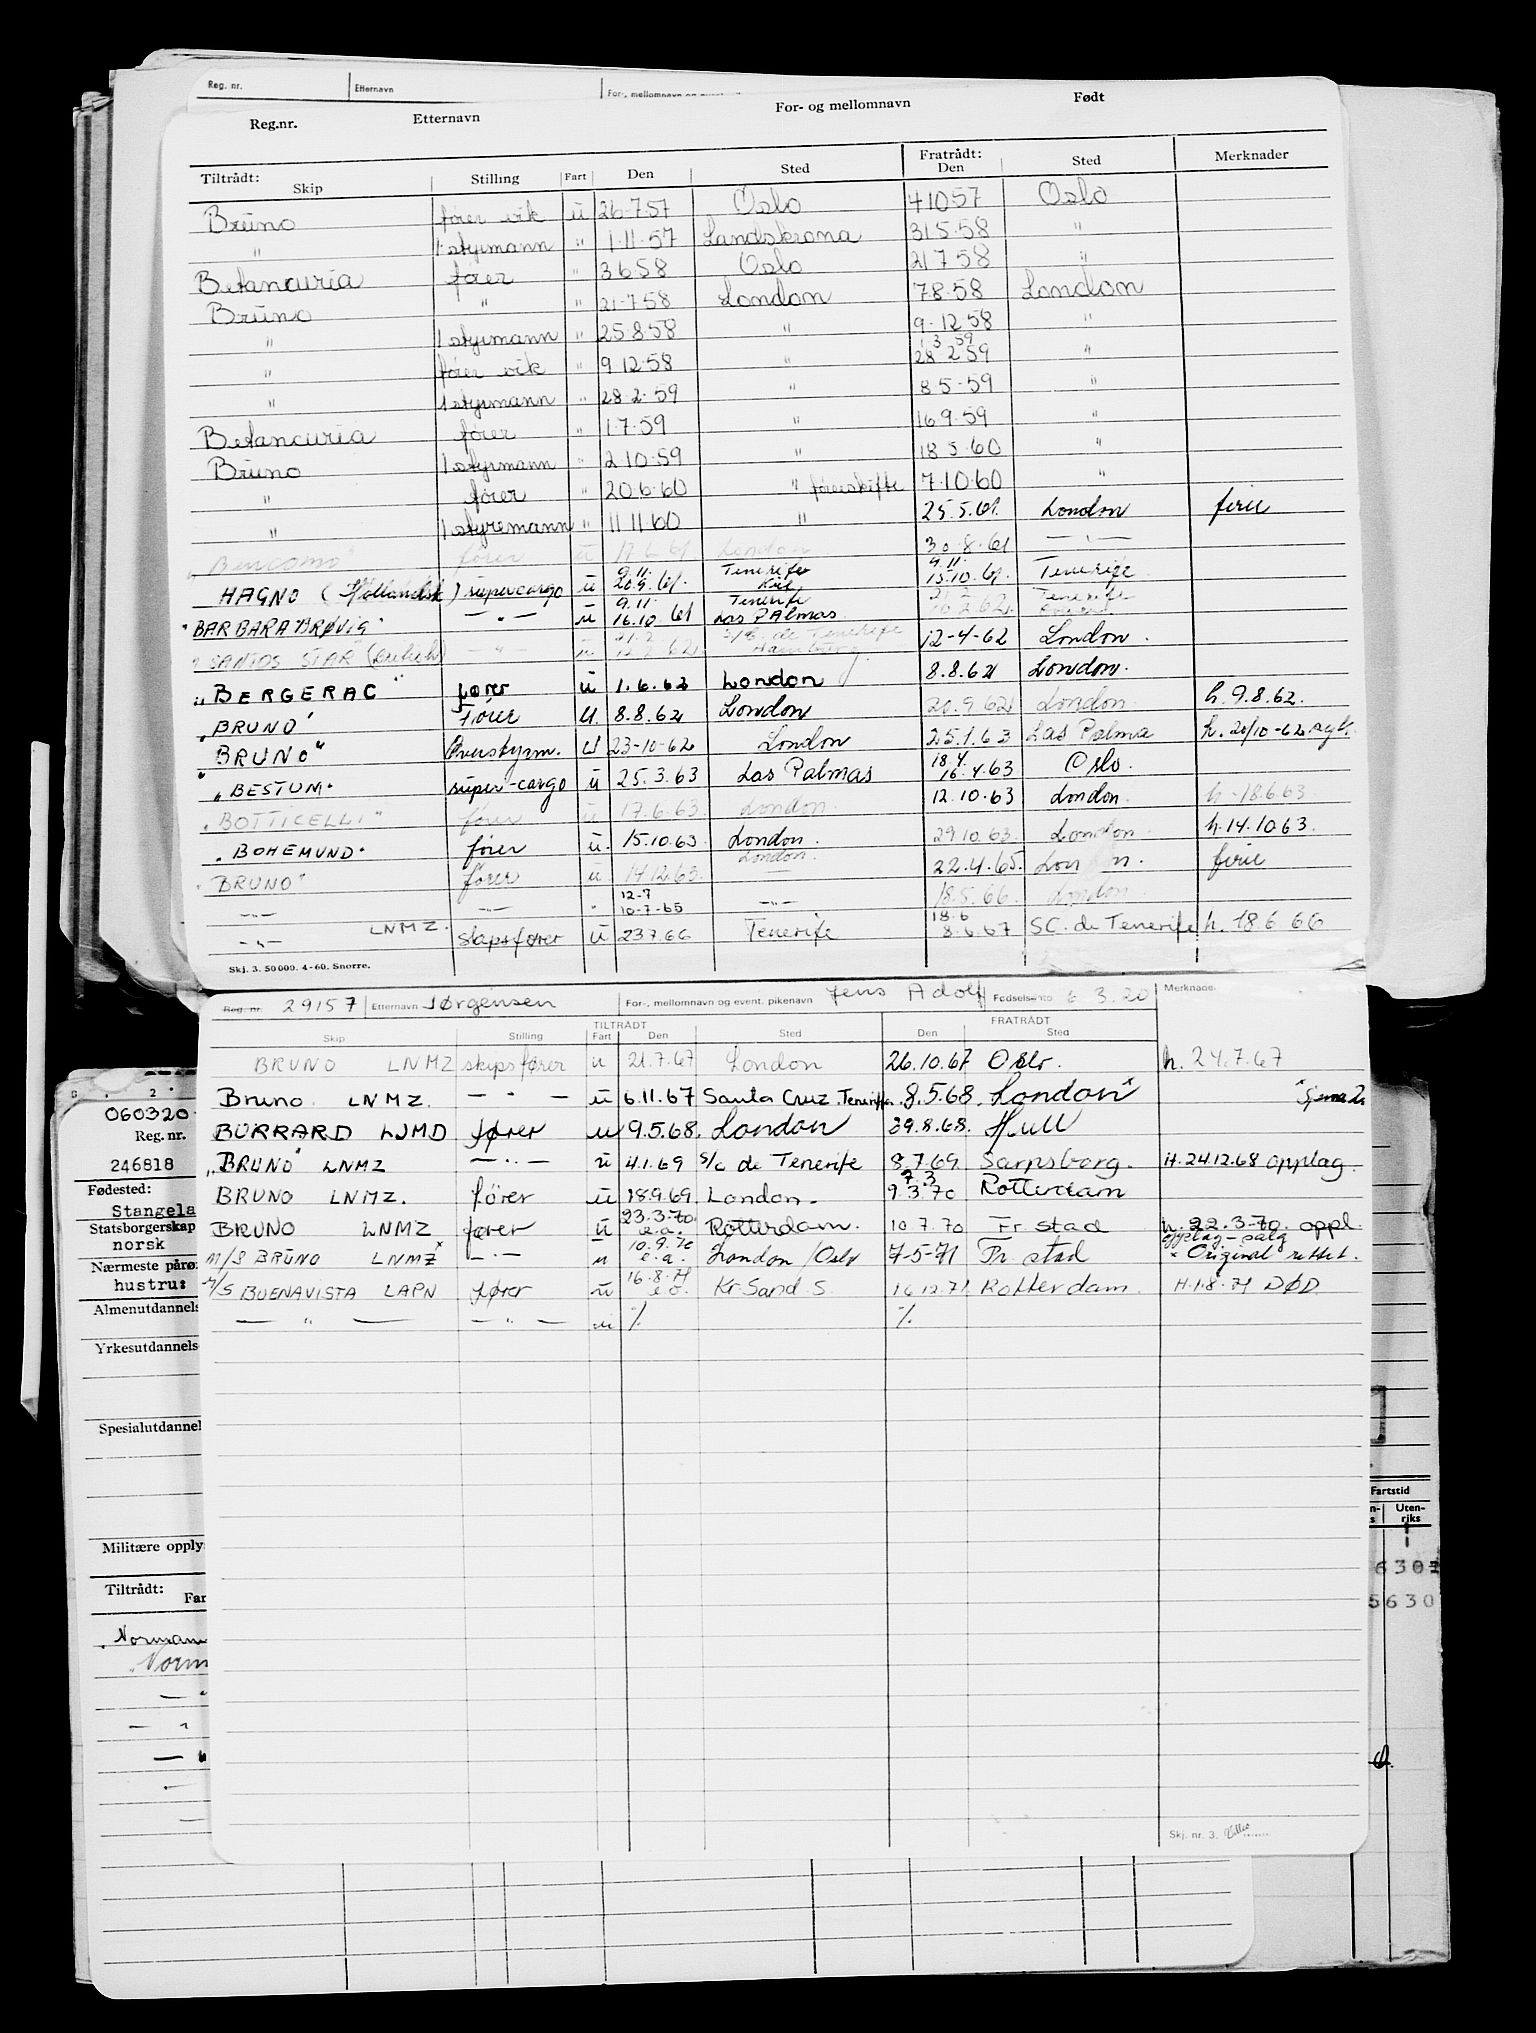 Reg. nr. Etternavn For-, mellomnavn og
Reg.nr. Etternavn For- og mellomnavn Født
Tiltrådt: Skip Stilling Fart Den Sted Fratrådt: Den Sted Merknader
Bruno fører vik ū 26-7-57 Oslo 41057 Oslo
" 1 styrmann " 1.11.57 Landskrona 315.58 "
Betancuria fører " 3658 Oslo 21758 "
Bruno " " 21.7.58 London 78.58 London
" 1 styrmann " 258.58 " 9.12.58 "
" fører vik " 9 12.58 " 28 2 59 3 59 "
" 1 styrmann " 28.2.59 " 85.59 "
Betancuria fører " 1.7.59 " 169.59 "
Bruno 1 styrmann " 2.10.59 " 185.60 "
" fører " 206.60 " førerskifte 7.10.60 "
" 1 styremann " 11 11 60 " 25.5.61. London ferie
"Bencomo" fører ū 17.6.61 London 30.8.61 — " —
HAGNO (Hollandsk) supercargo ū 9.11. 20.9.61. Tenerife Kiel 9.11. 15.10.61. Tenerife
"BARBARA BRØVIG" — " — ū 9.11. 16.10.61 Tenerife Las PAlmas 10.2.62. Tenerife
"SANTOS STAR — " — ū 21.2 S/C de Tenerife Hamburg 12-4-62 London.
"BERGERAC" fører ū 1.6.62 London 8.8.62 London.
"BRUNO" Fører U. 8.8.62 London 20.9.62 London h. 9.8.62.
"BRUNO" Overstyrm. U 23-10-62 London 25.1.63 Las Palma h. 20/10-62
"BESTUM" super-cargo ū 25.3.63 Las Palmas 18.4. 16.4.63 Oslo.
"BOTTICELLI" fører ū 17.6.63. London. 12.10.63 London. h-18.6.63.
"BOHEMUND" fører ū. 15.10.63. London. 29.10.63. London h.14.10.63.
"BRUNO" fører ū 14.12.63. London. 22.4.65. London. ferie
— " — — " — " 12-7 10-7-65 — " — 18.5.66. London
— " — LNMZ. skipsfører Ū 237.66 Tenerife 18.6 8.6.67 SC. de Tenerife h. 18 6 66
Skj. 3. 50 000. 4-60. Snorre.
Reg. nr. 29157 Etternavn Jørgensen For-, mellomnavn og event. pikenavn Jens Adolf Fødselsnto 6 3.20 Merknade.
TILTRÅDT FRATRÅDT
Skip Stilling Fart Den Sted Den Sted
BRUNO LNMZ skipsfører u 21.7.67 London 26.10.67 Oslo. h. 24.7.67
Bruno. LNMZ. — " — ū 6.11.67 Santa Cruz. Teneriffa. 8.5.68. London"
BURRARD LJMD fører u 9.5.68. London 29.8.68. Hull
"BRUNO" LNMZ — " — ū 4.1.69 S/C de Tenerife 8.7.69. Sarpsborg. H.24.12.68 opplag.
BRUNO LNMZ. fører ū 18.9.69 London. 9.3.70 Rotterdam
BRUNO LNMZ fører ū 23.3.70. Rotterdam. 10.7.70 Fr. stad h. 22.3-70. oppl. opplag-salg
M/S BRUNO LNMZ x — " — u 10.9.70 London/Oslo 7-5-71 Fr. stad x Original rettet.
M/S BUENAVISTA LAPN fører ū 16.8.71 Kr. Sand. S. 16.12.71 Rotterdam. H.1.8.71 DØD
— " — — " — u % %
Skj. nr. 3.
060320
Reg. nr.
246818
Fødested:
Stangela
Statsborgerskap
norsk
Nærmeste pårø
hustru:
Almenutdannels
Yrkesutdannels
Spesialutdannel
Militære opply
Tiltrådt:
Far
Norman
"Norm
Fartstid
Uten-
riks
6301
5630